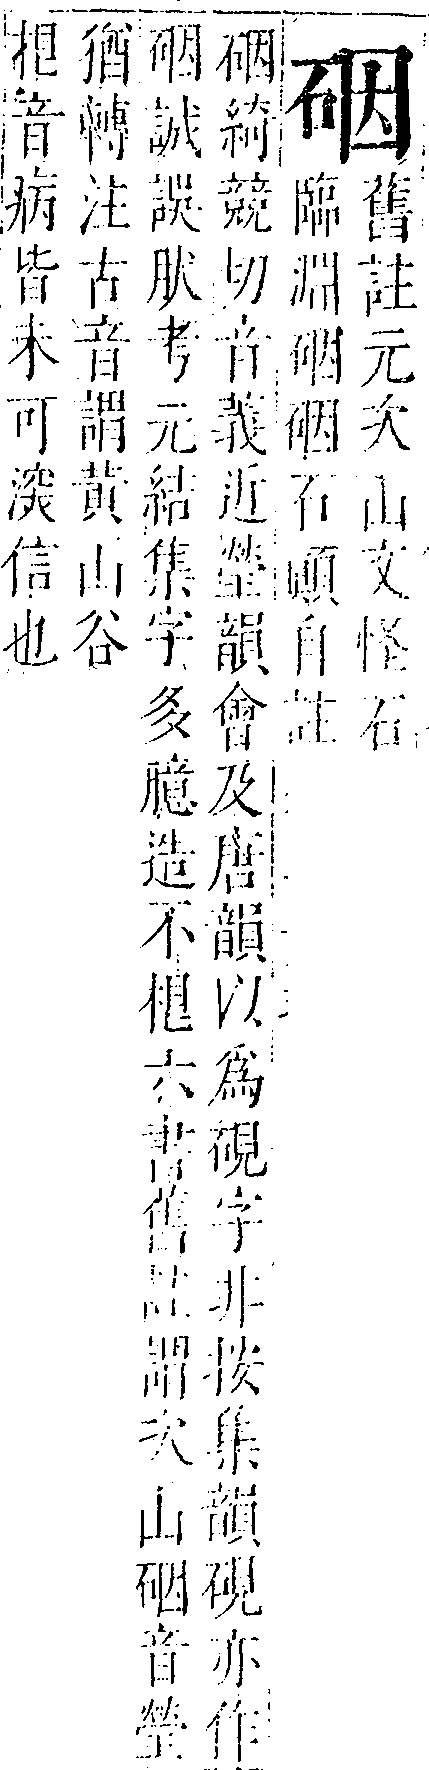 䂩
舊註元次山文怪石
臨淵䂩䂩石顚自註
䂩綺競切音義近瑩韻會及唐韻以爲硯字非按集韻硯亦作
䂩誠誤肰考元結集字多臆造不六書舊註謂次山䂩音瑩
猶轉注古音謂黃山谷
音病皆未可深信也